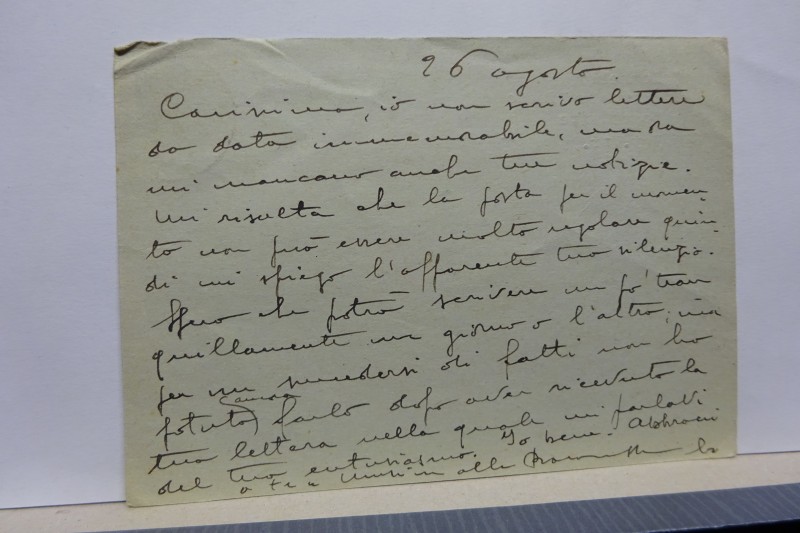 26 agosto.
Carissima, io non scrivo lettere
da data immemorabile, ma ora
mi mancano anche tue notizie.
Mi risulta che la posta per il momen
to non può essere molto regolare quin
di mi spiego l'apparente tuo silenzio.
Spero che potrò scrivere un po' tran
quillamente un giorno o l'altro; ma
per un succedersi di fatti non ho
potuto ancora farlo dopo aver ricevuto la
tua lettera nella quale mi parlavi
del tuo entusiasmo. Io bene. Abbracci
a te e